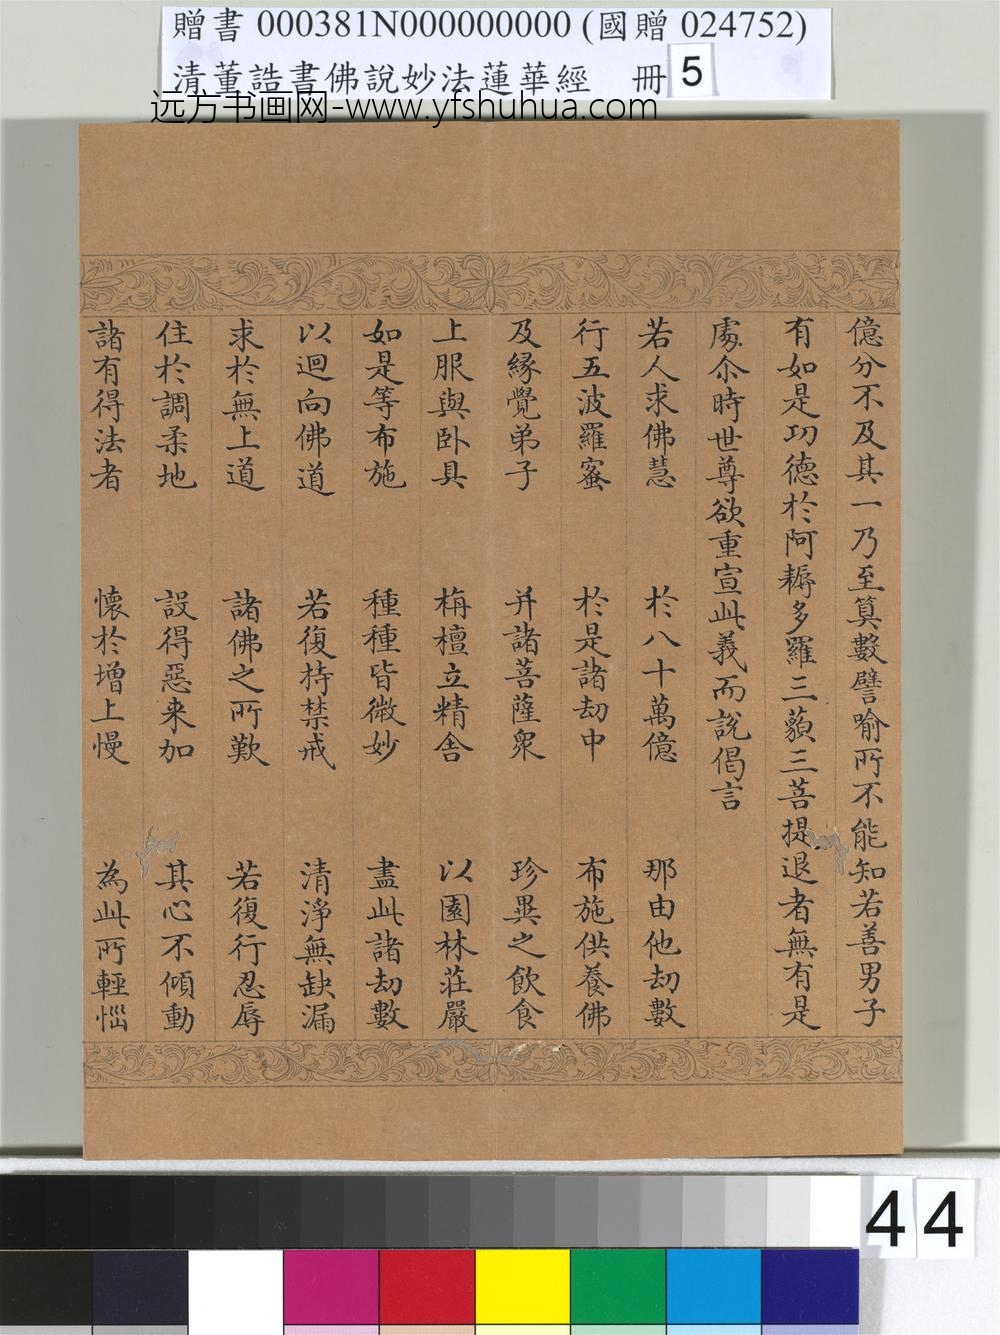 贈書 000381N000000000 (國贈 024752)
清董誥書佛說妙法蓮華經 冊 5
远方书画网-www.yfshuhua.com
億分不及其一乃至筭數譬喻所不能知若善男子
有如是功德於阿耨多羅三藐三菩提退者無有是
處尒時世尊欲重宣此義而說偈言
若人求佛慧 於八十萬億 那由他劫數
行五波羅蜜 於是諸劫中 布施供養佛
及緣覺弟子 并諸菩薩眾 珍異之飲食
上服與臥具 栴檀立精舍 以園林莊嚴
如是等布施 種種皆微妙 盡此諸劫數
以迴向佛道 若復持禁戒 清淨無缺漏
求於無上道 諸佛之所歎 若復行忍辱
住於調柔地 設得惡來加 其心不傾動
諸有得法者 懷於增上慢 為此所輕惱
44